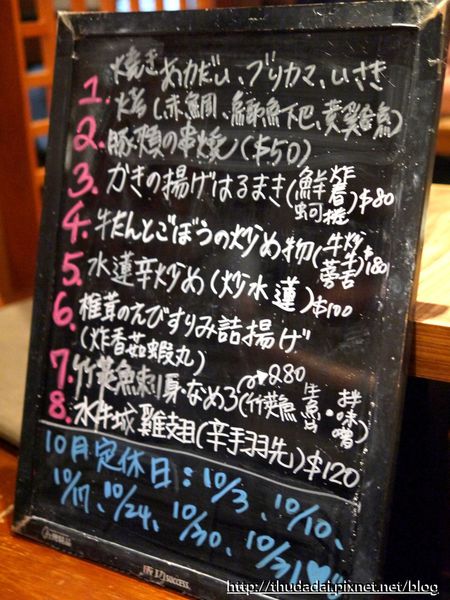 1. 焼きあかだい、ブリカマ、いさき
(烤 赤鯛、鰤魚下巴、黃雞魚)
2. 豚頬の串焼 ($50)
3. かきの揚げはるまき(鮮蚵炸春捲)$80
4. 牛たんとごぼうの炒め物(牛舌炒牛蒡)$180
5. 水蓮辛炒め(炒水蓮)$100
6. 椎茸のえびすりみ詰揚げ
(炸香菇蝦丸)
7. 竹筴魚刺身・なめろ(竹筴魚生魚片・拌味噌)280
8. 水牛城雞翅(辛手羽先)$120
10月定休日:10/3、10/10、
10/17、10/24、10/30、10/31♥
http://thudadai.pixnet.net/blog